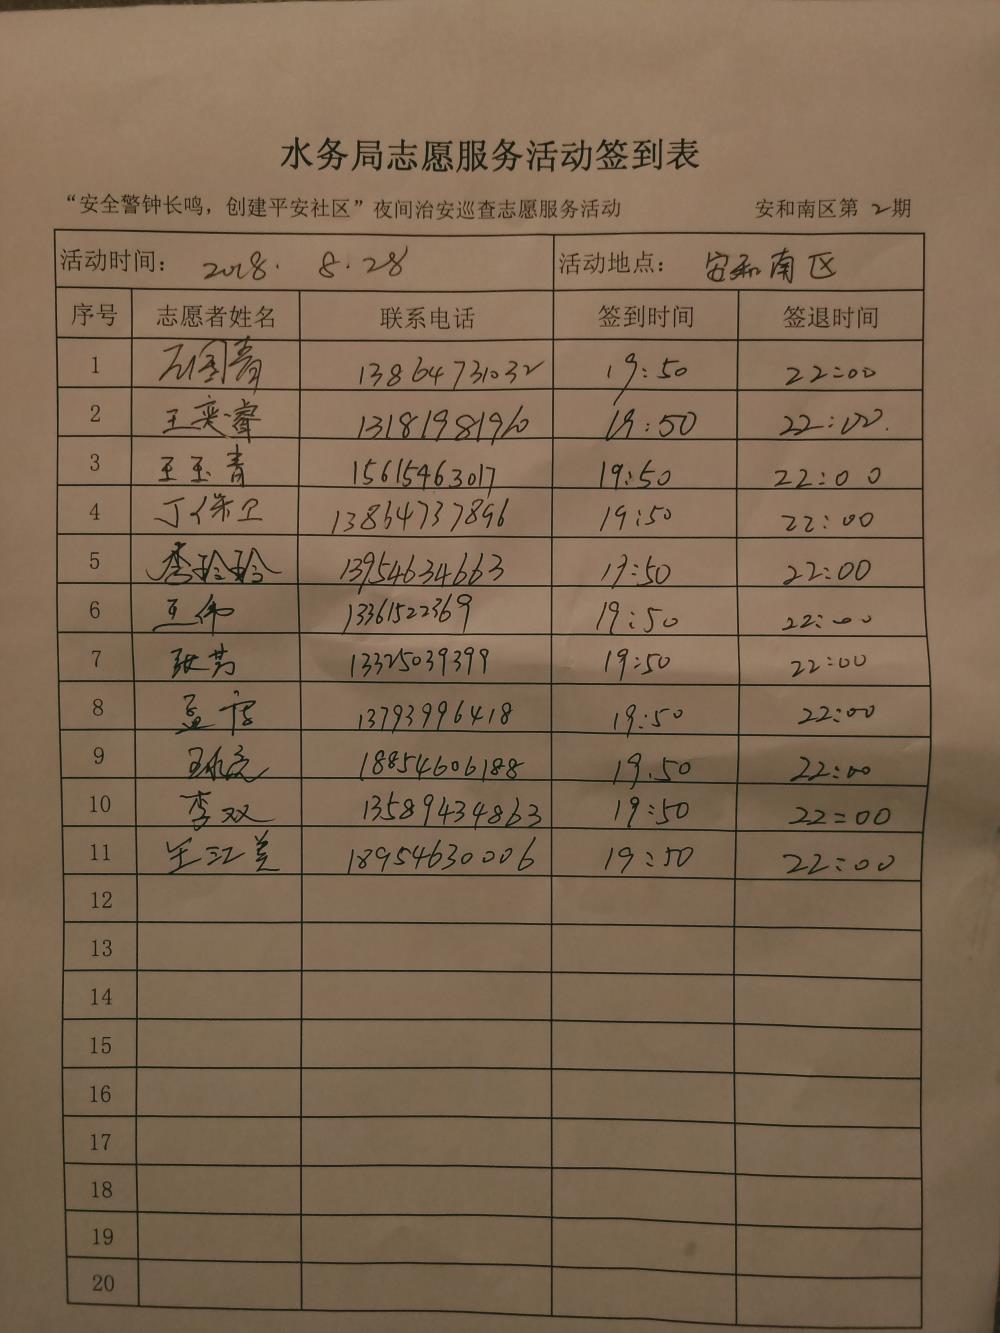 水务局志愿服务活动签到表
“安全警钟长鸣，创建平安社区”夜间治安巡查志愿服务活动 安和南区第2期
活动时间： 2018. 8.28 活动地点： 安和南区
序号 志愿者姓名 联系电话 签到时间 签退时间
1 石国青 13864731032 19:50 22:00
2 王奕睿 13181981960 19:50 22:00.
3 王玉青 15615463017 19:50 22:00
4 丁保卫 13864737896 19:50 22:00
5 李玲玲 13954634663 19:50 22:00
6 王伟 13361522369 19:50 22:00
7 张芳 13325039399 19:50 22:00
8 孟 13793996418 19:50 22:00
9 王 18854606188 19.50 22:00
10 李双 13589434863 19:50 22:00
11 王江美 18954630006 19:50 22:00
12
13
14
15
16
17
18
19
20